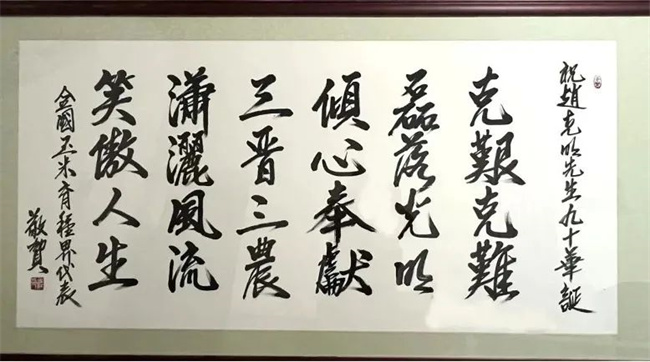 祝趙克明先生九十華誕
克艱克難
磊落光明
傾心奉獻
三晋三農
瀟灑風流
笑傲人生
全國玉米育種界代表
敬賀